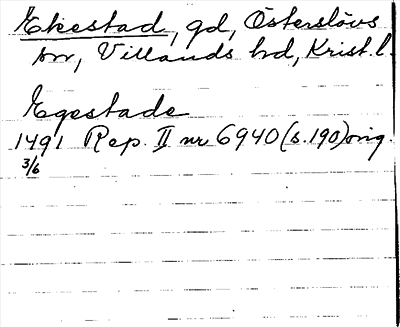 Ekestad, gd, Österslövs
sn, Villands hd, Krist.l.
Egestade
1491 Rep. II nr 6940 (s. 190) orig.
3/6